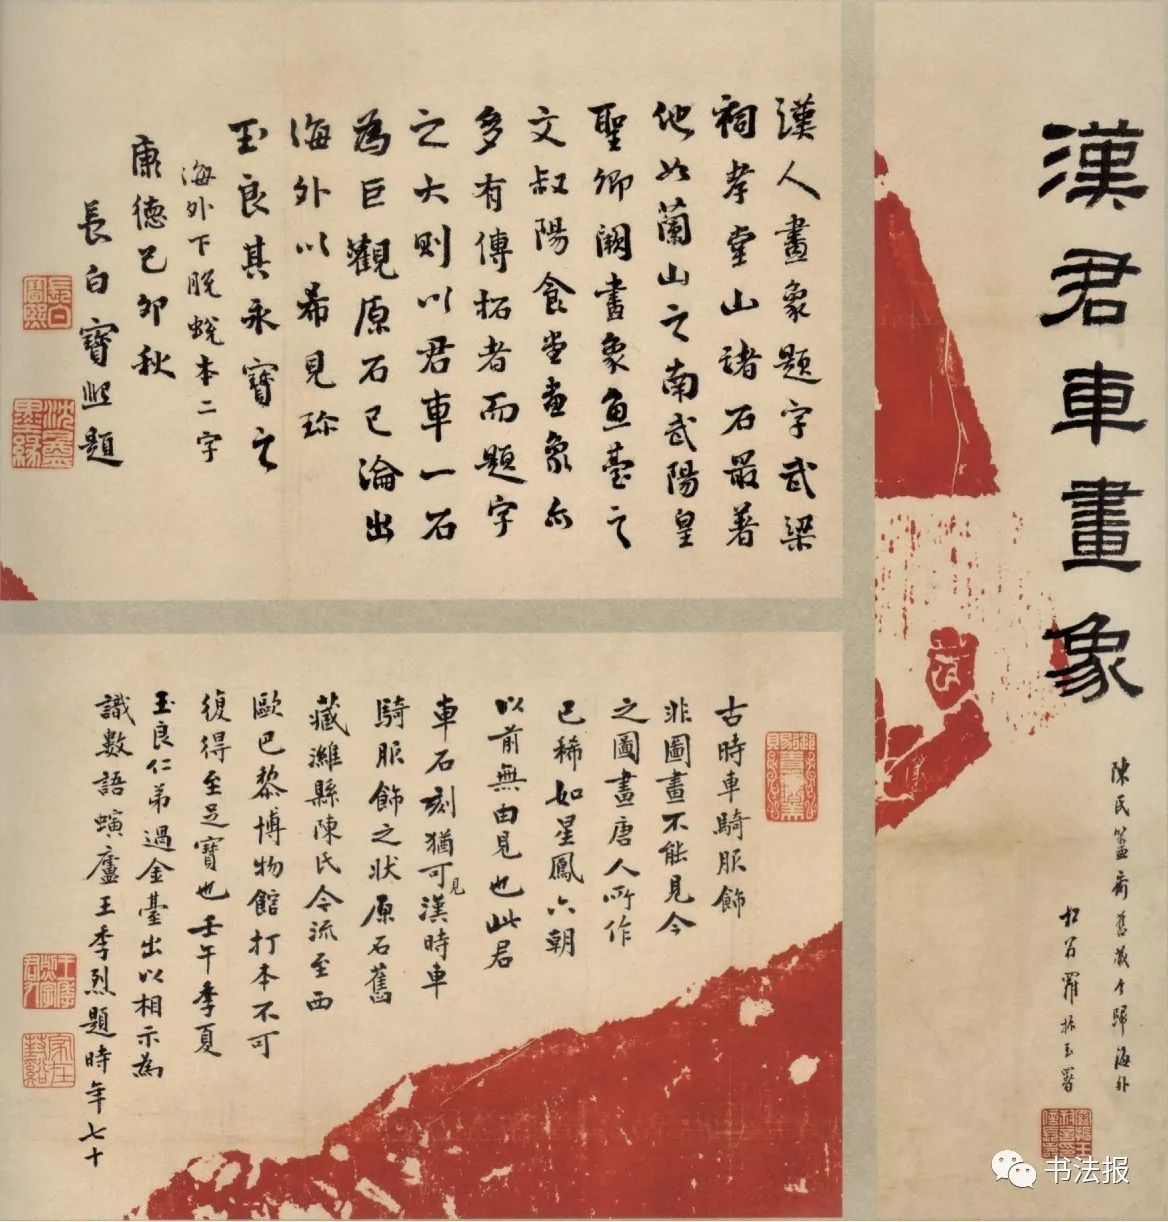 漢君車畫象
陳氏簠齋舊藏今歸海外
松翁羅振玉署
漢人畫象題字武梁
祠孝堂山諸石最著
他如蘭山之南武陽皇
聖卿闕畫象魚臺之
文叔陽食堂畫象亦
多有傳拓者而題字
之大則以君車一石
為巨觀原石已淪出
海外以希見珍
玉良其永寶之
海外下脫蛻本二字
康德己卯秋
長白寶熙題
長白
寶熙
沈盦
墨緣
古時車騎服飾
非圖畫不能見今
之圖畫唐人所作
已稀如星鳳六朝
以前無由見也此君
車石刻猶可見漢時車
騎服飾之狀原石舊
藏濰縣陳氏今流至西
歐巴黎博物館打本不可
復得至足寶也壬午季夏
玉良仁弟過金臺出以相示為
識數語螾廬王季烈題時年七十
王季
烈字
君九
家在
書报